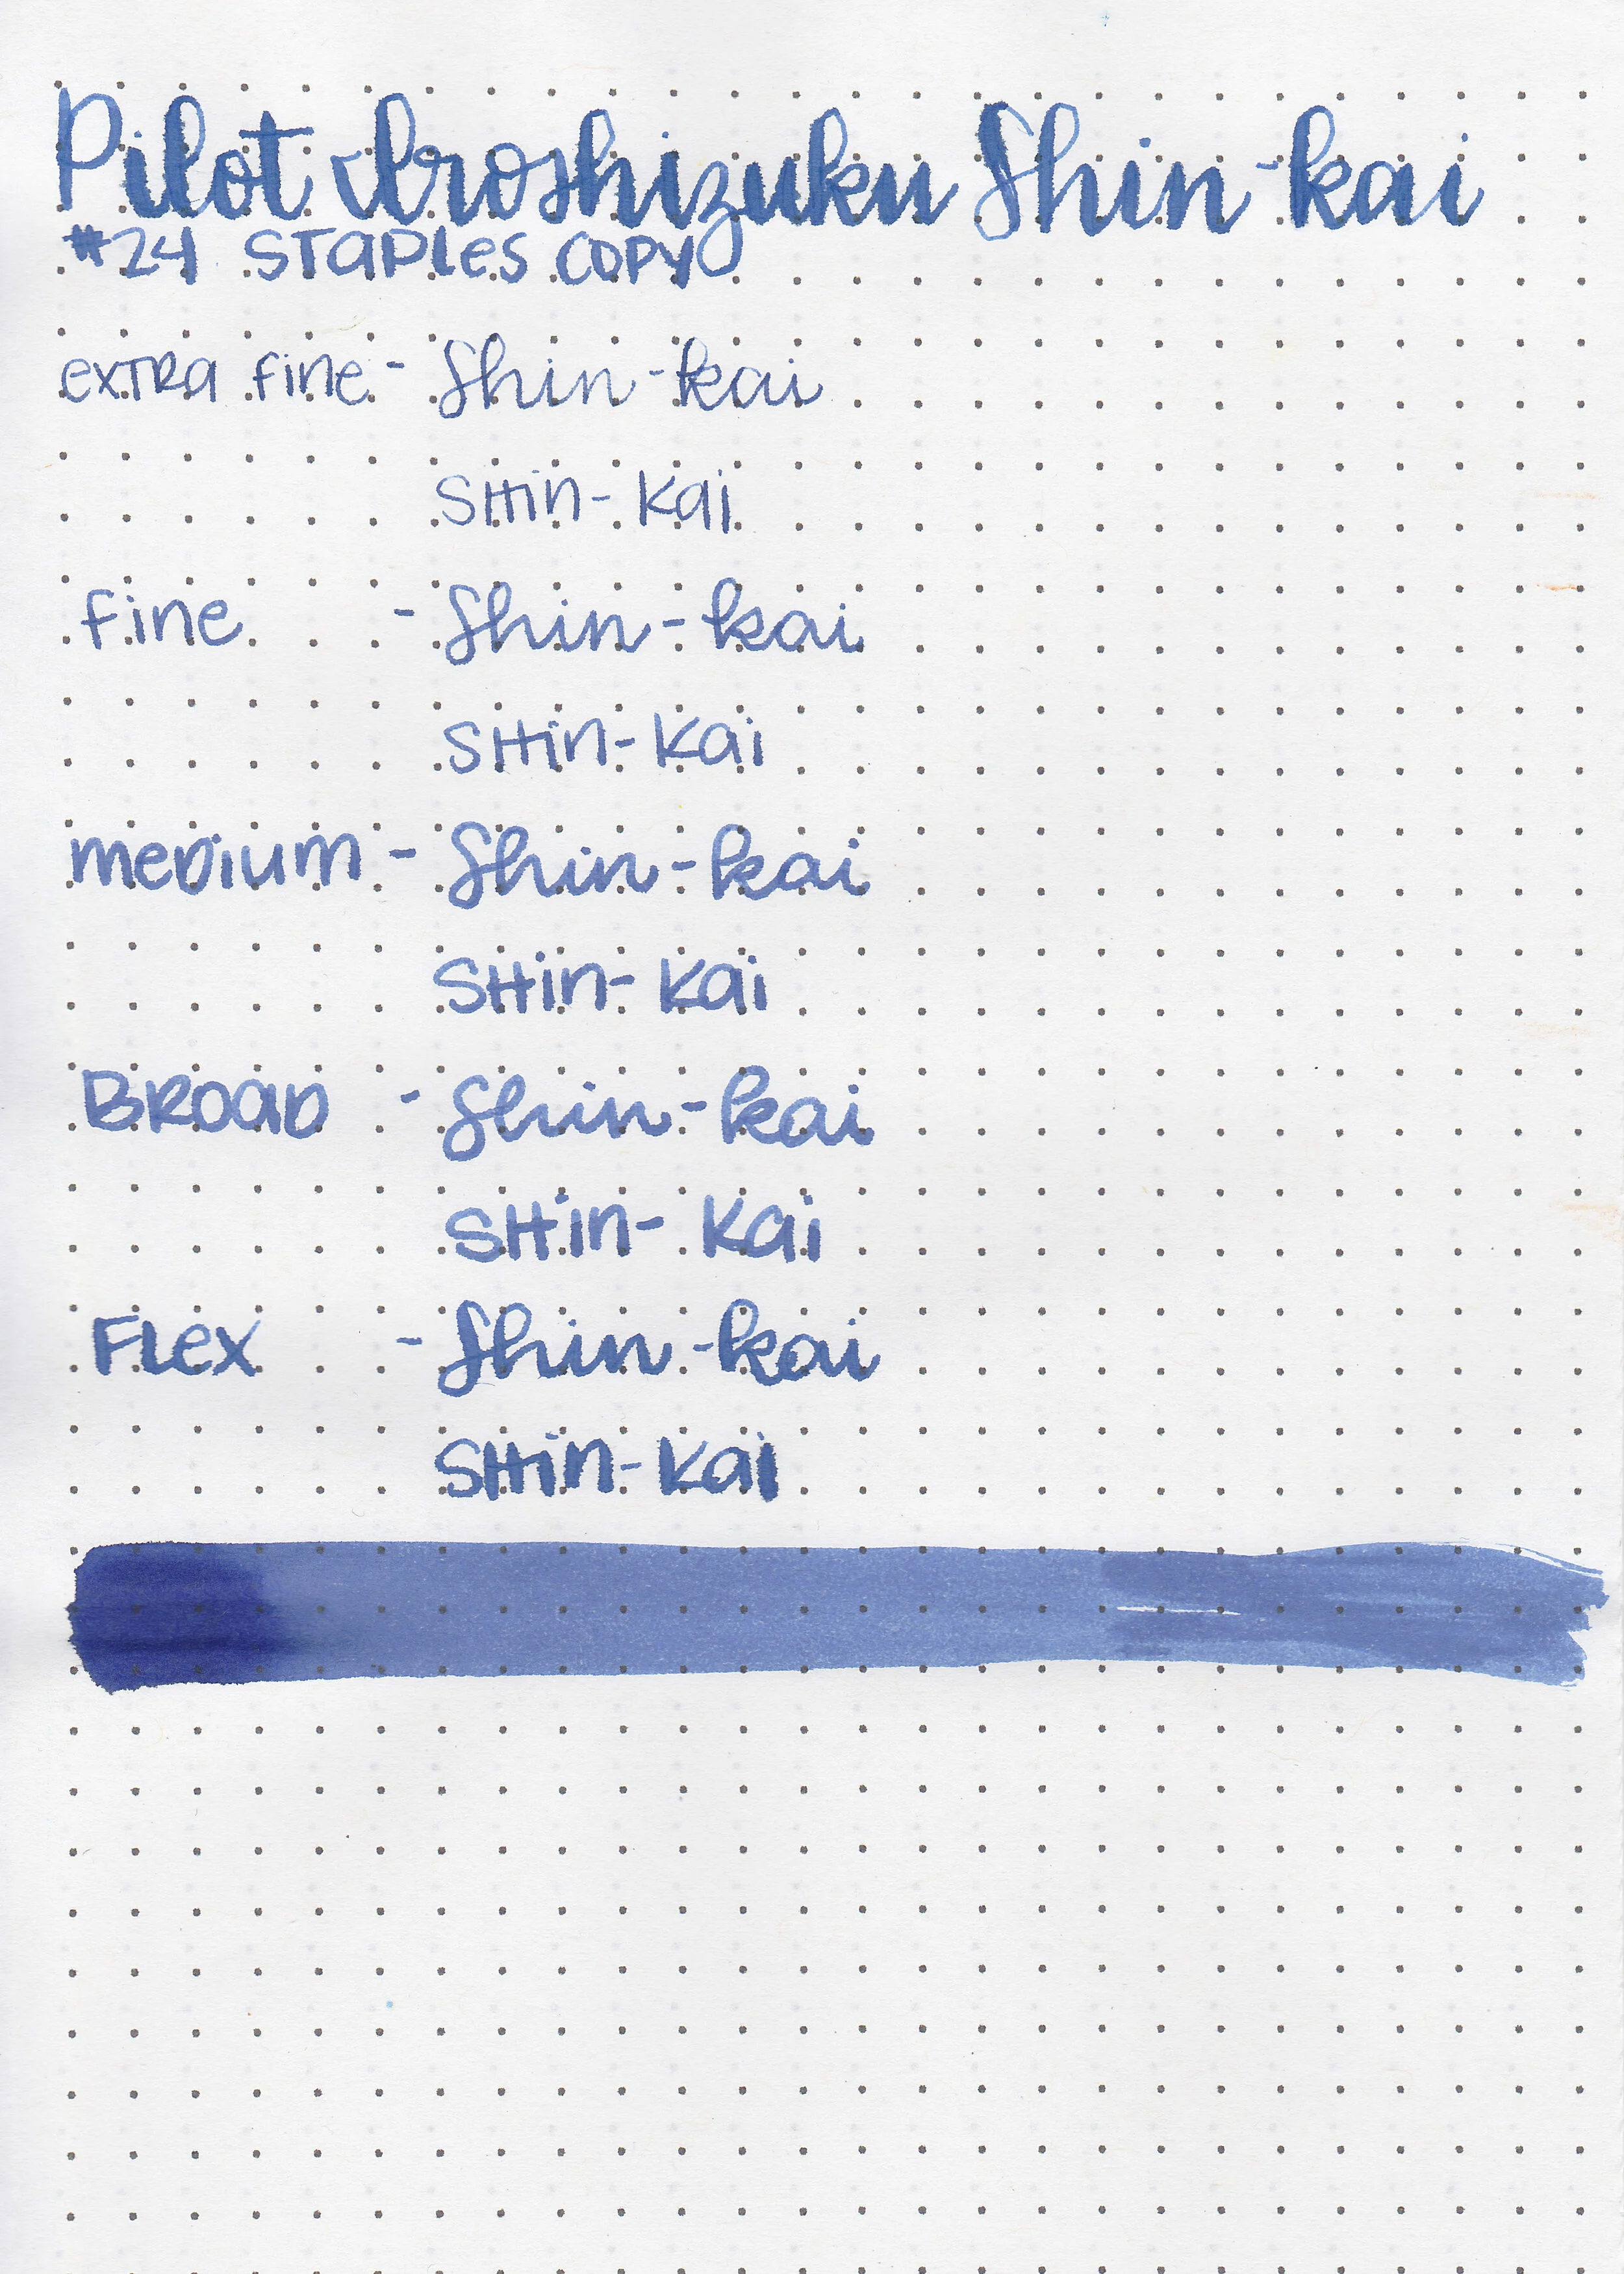 Pilot Iroshizuku Shin-kai
#24 STaPLes COPY
exTRa fine - Shin-kai
SHin-kai
fine - Shin-kai
SHin-kai
meDium - Shin-kai
SHin-kai
BROaD - Shin-kai
SHin-kai
FLex - Shin-kai
SHin-kai